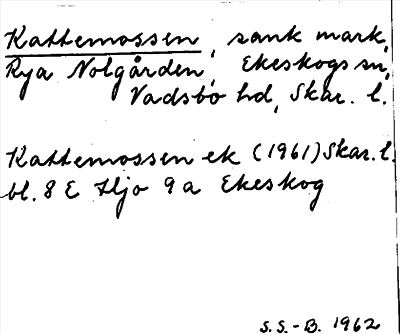 Kattemossen, sank mark,
Rya Nolgården, Ekeskogs sn,
Vadsbo hd, Skar. l.
Kattemossen ek (1961) Skar. l.
bl. 8 E Hjo 9 a Ekeskog
S.S.-B. 1962